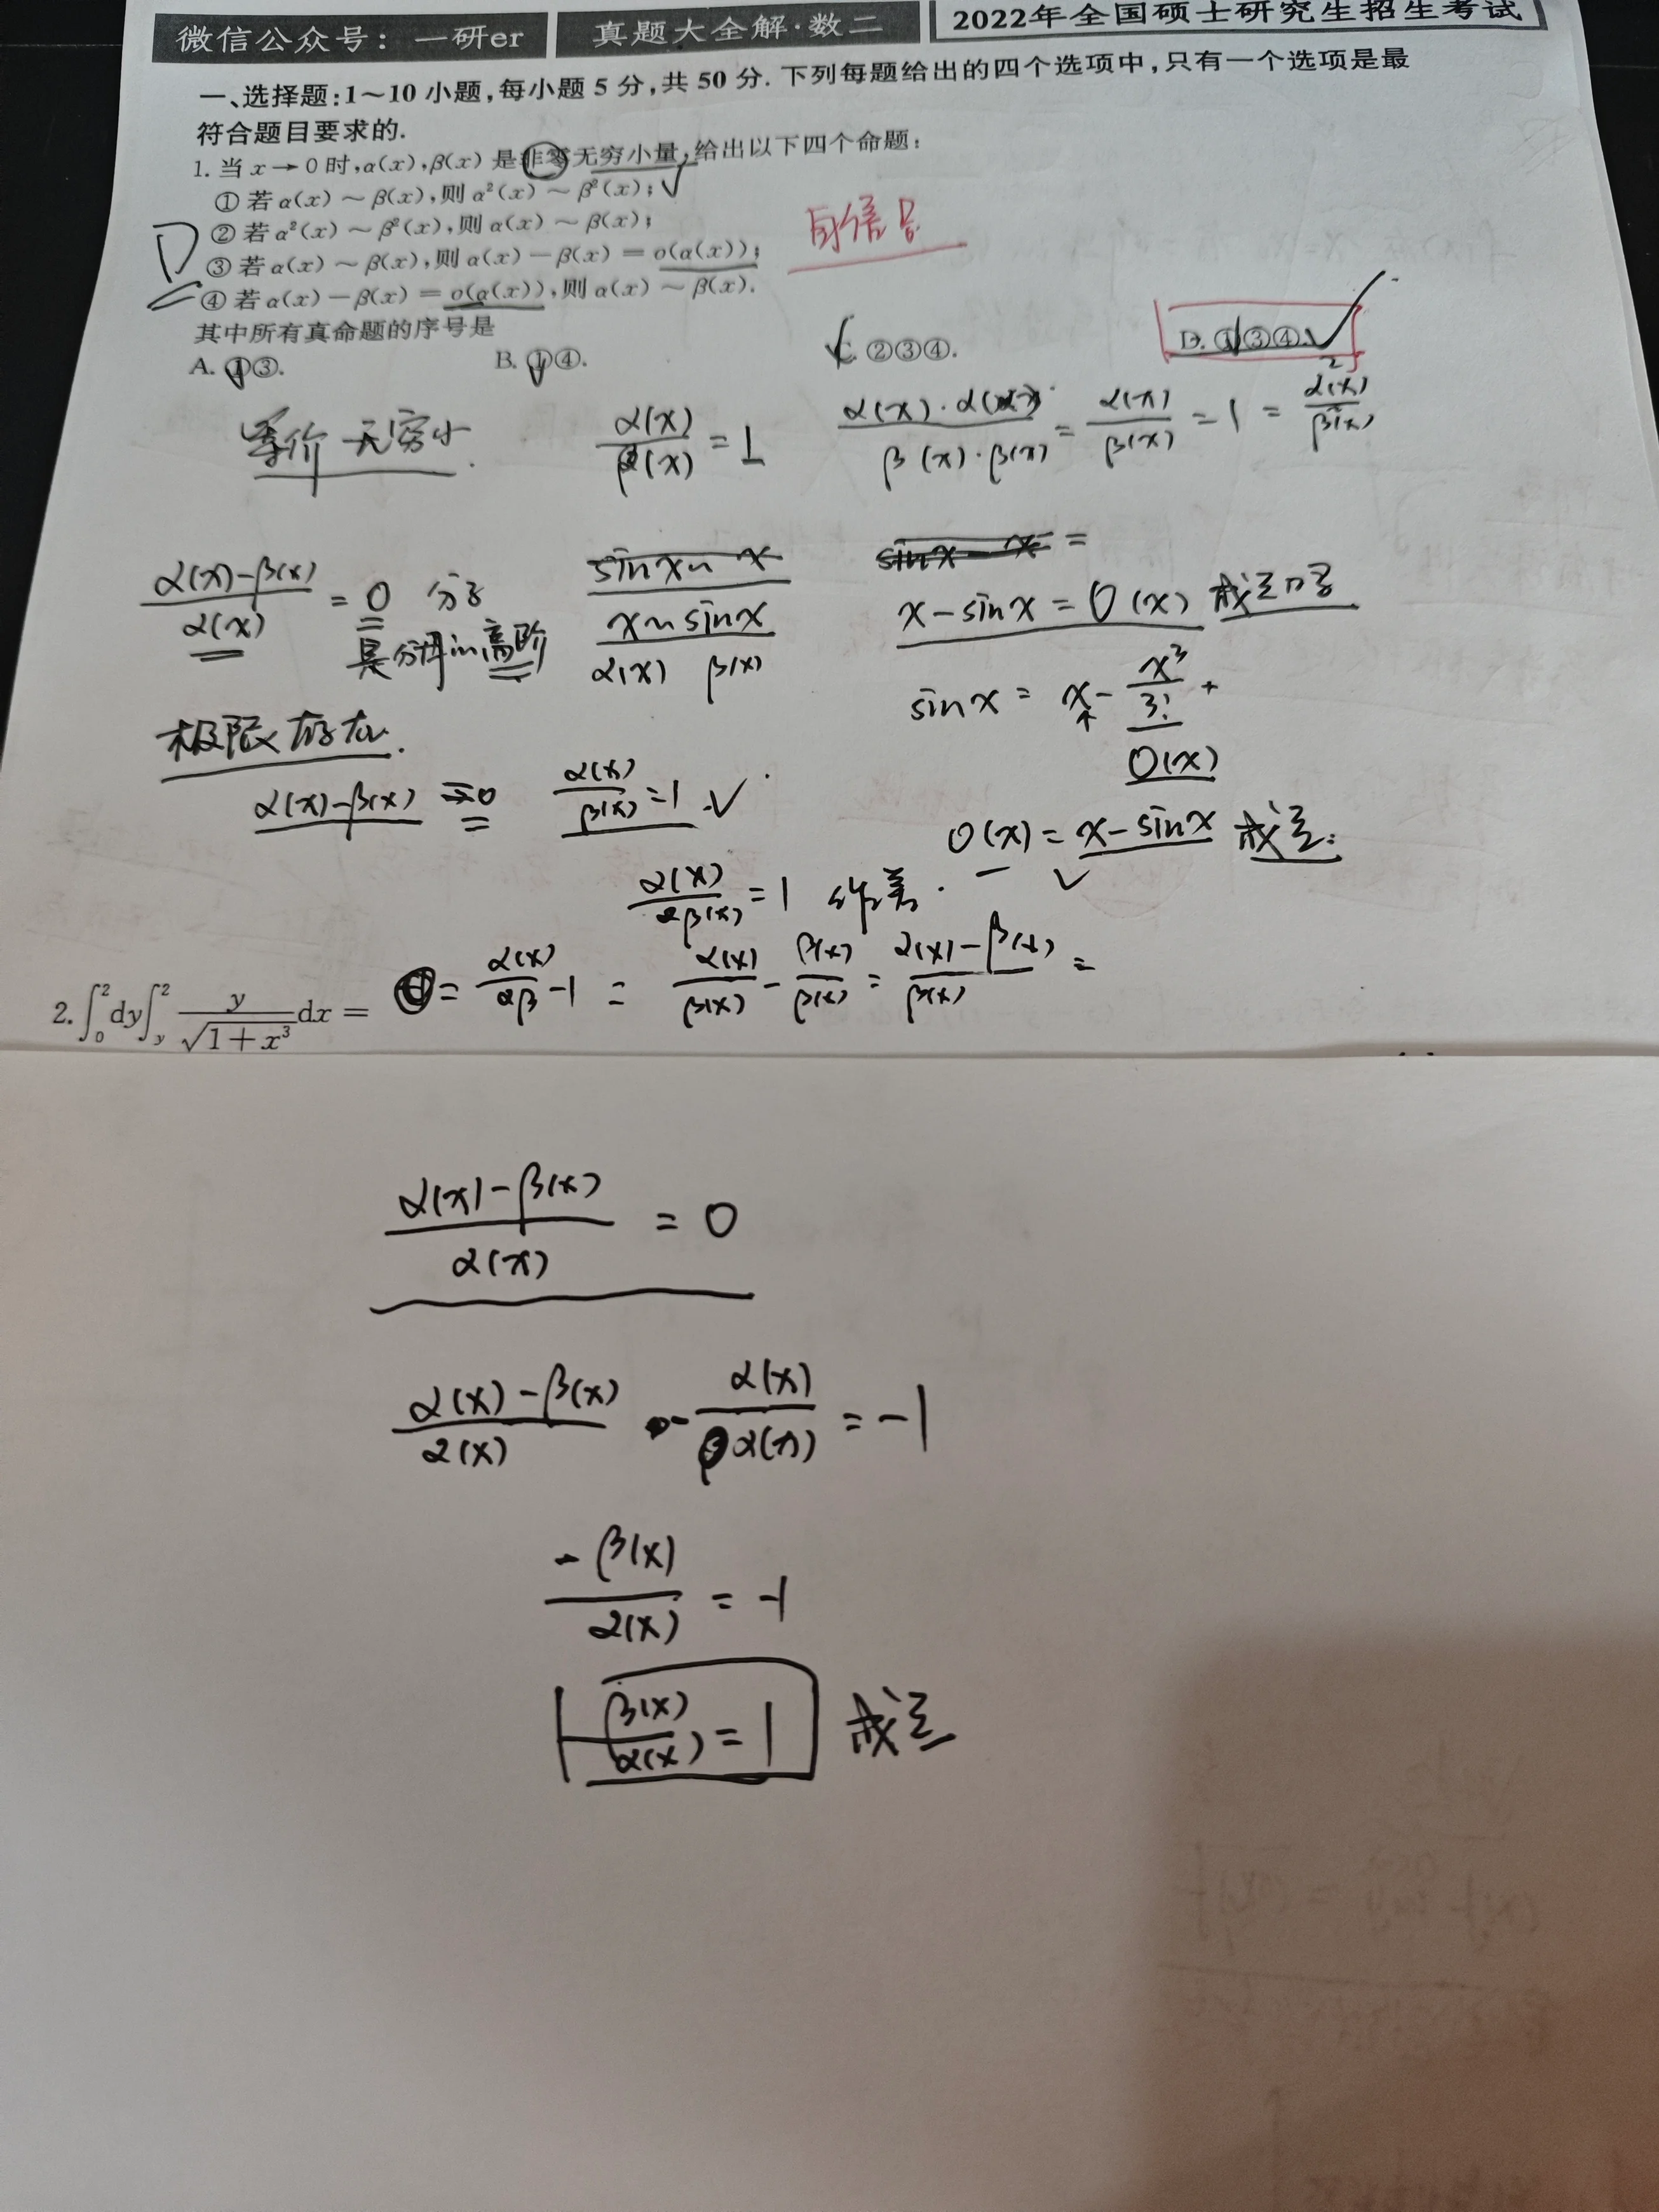 微信公众号：一研er 真题大全解·数二 2022年全国硕士研究生招生考试
一、选择题:1～10 小题,每小题 5 分,共 50 分. 下列每题给出的四个选项中,只有一个选项是最
符合题目要求的.
1. 当 x→0 时,α(x),β(x) 是非零无穷小量,给出以下四个命题:
① 若 α(x) ～ β(x),则 α²(x) ～ β²(x); ✓
② 若 α²(x) ～ β²(x),则 α(x) ～ β(x);
③ 若 α(x) ～ β(x),则 α(x) − β(x) = o(α(x));
④ 若 α(x) − β(x) = o(α(x)),则 α(x) ～ β(x).
其中所有真命题的序号是
A. ①③. B. ①④. C. ②③④. D. ①③④. ✓
等价无穷小. α(x)/β(x) = 1 α(x)·α(x)/β(x)·β(x) = α(x)/β(x) = 1 = α²(x)/β²(x)
(α(x)−β(x))/α(x) = 0 分子
是分母的高阶
x ~ sinx
α(x) β(x)
x − sinx = O(x) 成立
sinx = x − x³/3! +
O(x)
极限存在.
α(x)−β(x) → 0 α(x)/β(x) = 1 ✓
O(x) = x − sinx 成立.
α(x)/β(x) = 1
= α(x)/β − 1 = α(x)/β(x) − β(x)/β(x) = (α(x)−β(x))/β(x) =
2. ∫₀² dy ∫_y² y/√(1+x³) dx =
(α(x)−β(x))/α(x) = 0
(α(x)−β(x))/α(x) − α(x)/α(x) = −1
−β(x)/α(x) = −1
β(x)/α(x) = 1 成立